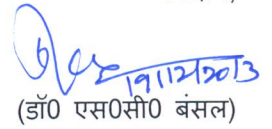 19/12/2013
(डॉ0 एस0सी0 बंसल)